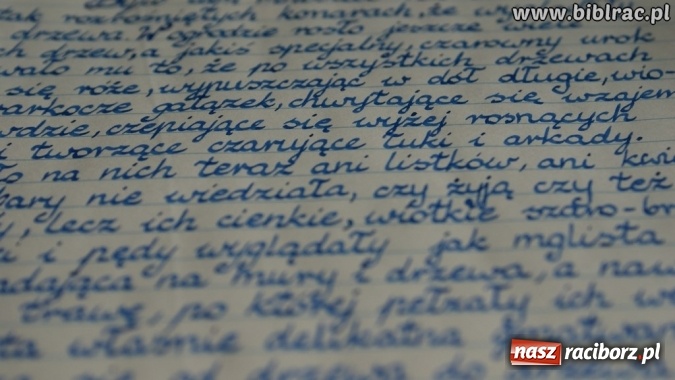 www.biblrac.pl
tak rozłożystych konarach, że wyg
drzewa. W ogrodzie rosło jeszcze wiele
ch drzew, a jakiś specjalny, czarowny urok
wało mu to, że po wszystkich drzewach
się róże, wypuszczając w dół długie, wio-
warkocze gałązek, chwytające się wzajem
wdzie, czepiające się wyżej rosnących
i tworzące czarujące łuki i arkady.
ło na nich teraz ani listków, ani kwi
Mary nie wiedziała, czy żyją czy też
y, lecz ich cienkie, wiotkie szaro-br
i i pędy wyglądały jak mglista
adająca na mury i drzewa, a naw
trawę, po której pełzały ich
ta właśnie delikatna
od drzewa do
nasz raciborz.pl